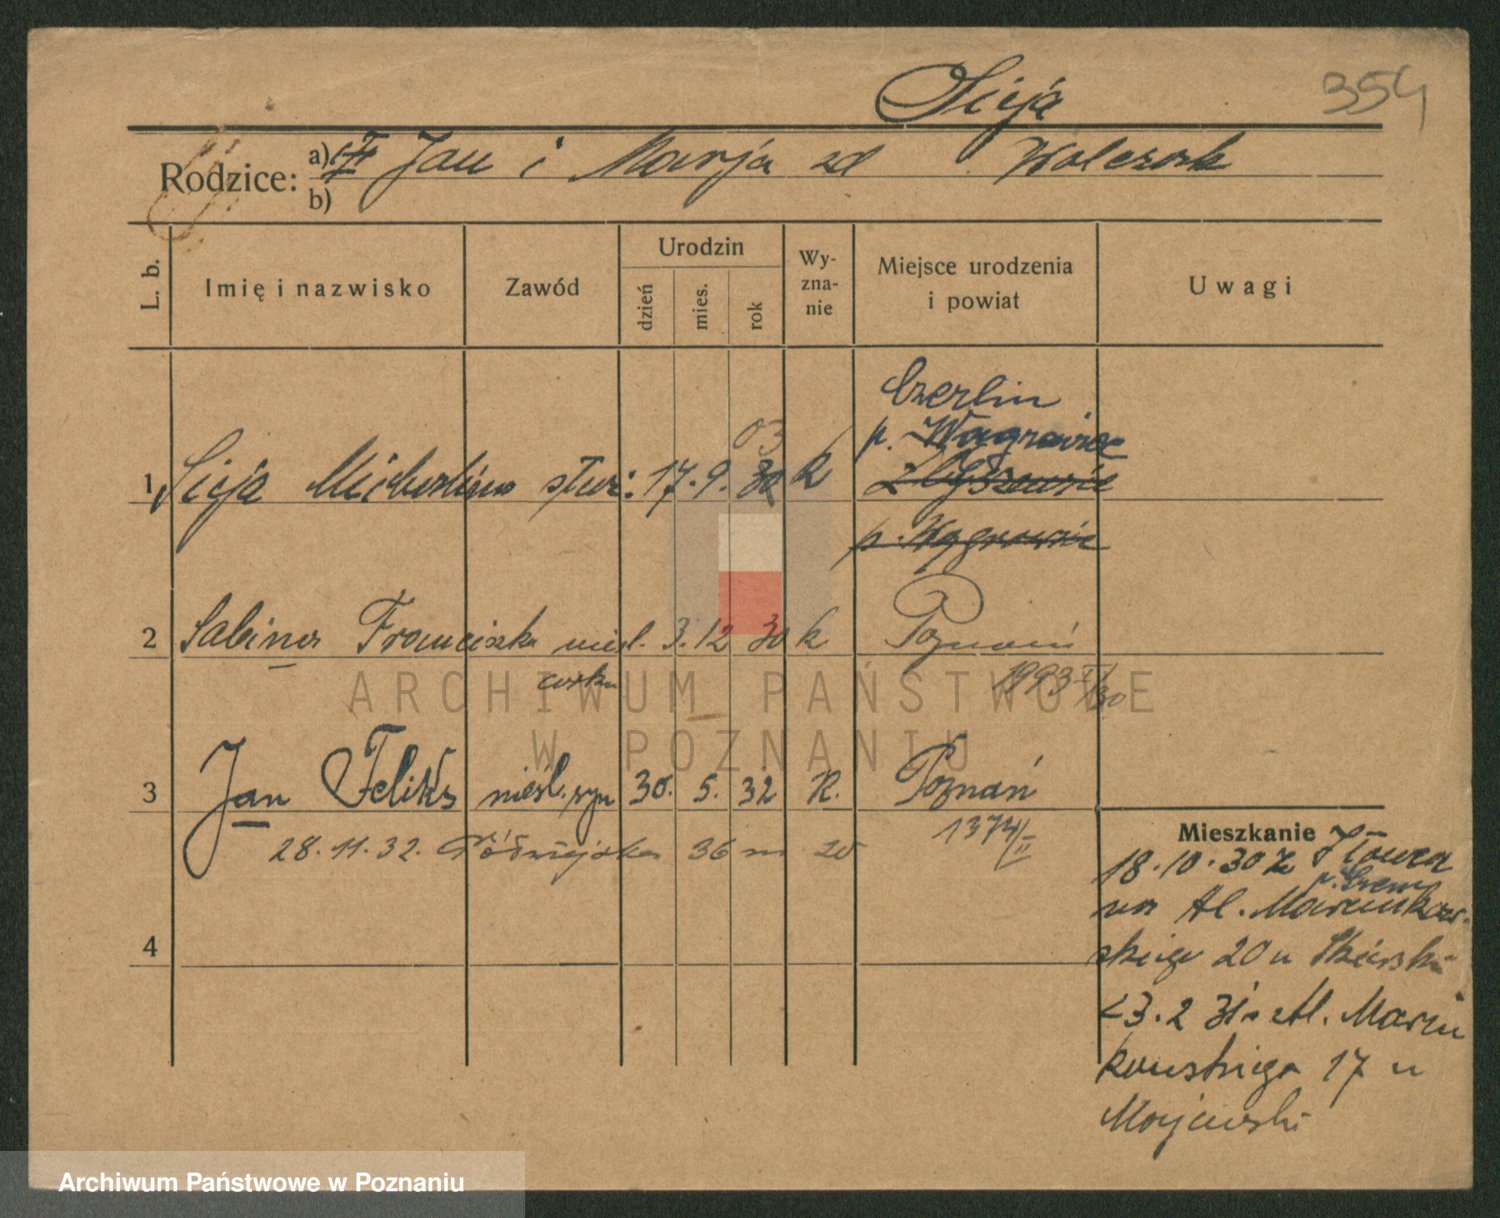 Sieja 354
Rodzice: a) Jan i Marja zd Walczak
b)
L. b. Imię i nazwisko Zawód Urodzin dzień mies. rok Wy-zna-nie Miejsce urodzenia i powiat Uwagi
Czerlin
p. Wągrowiec
03
1 Sieja Michalina służ. 17. 9. 30 k
p. Wągrowiec
2 Sabina Franciszka nieśl. 3. 12 30 k Poznań
córka 1993
ARCHIWUM PAŃSTWOWE
W POZNANIU
3 Jan Feliks nieśl. syn 30. 5. 32 R. Poznań
1374/II
28.11.32. 36 m 20
Mieszkanie
18.10.30 z
na Al. Marcinkow-
4 skiego 20 u
3.2 31 Al. Marcin
kowskiego 17 u
Majewski
Archiwum Państwowe w Poznaniu